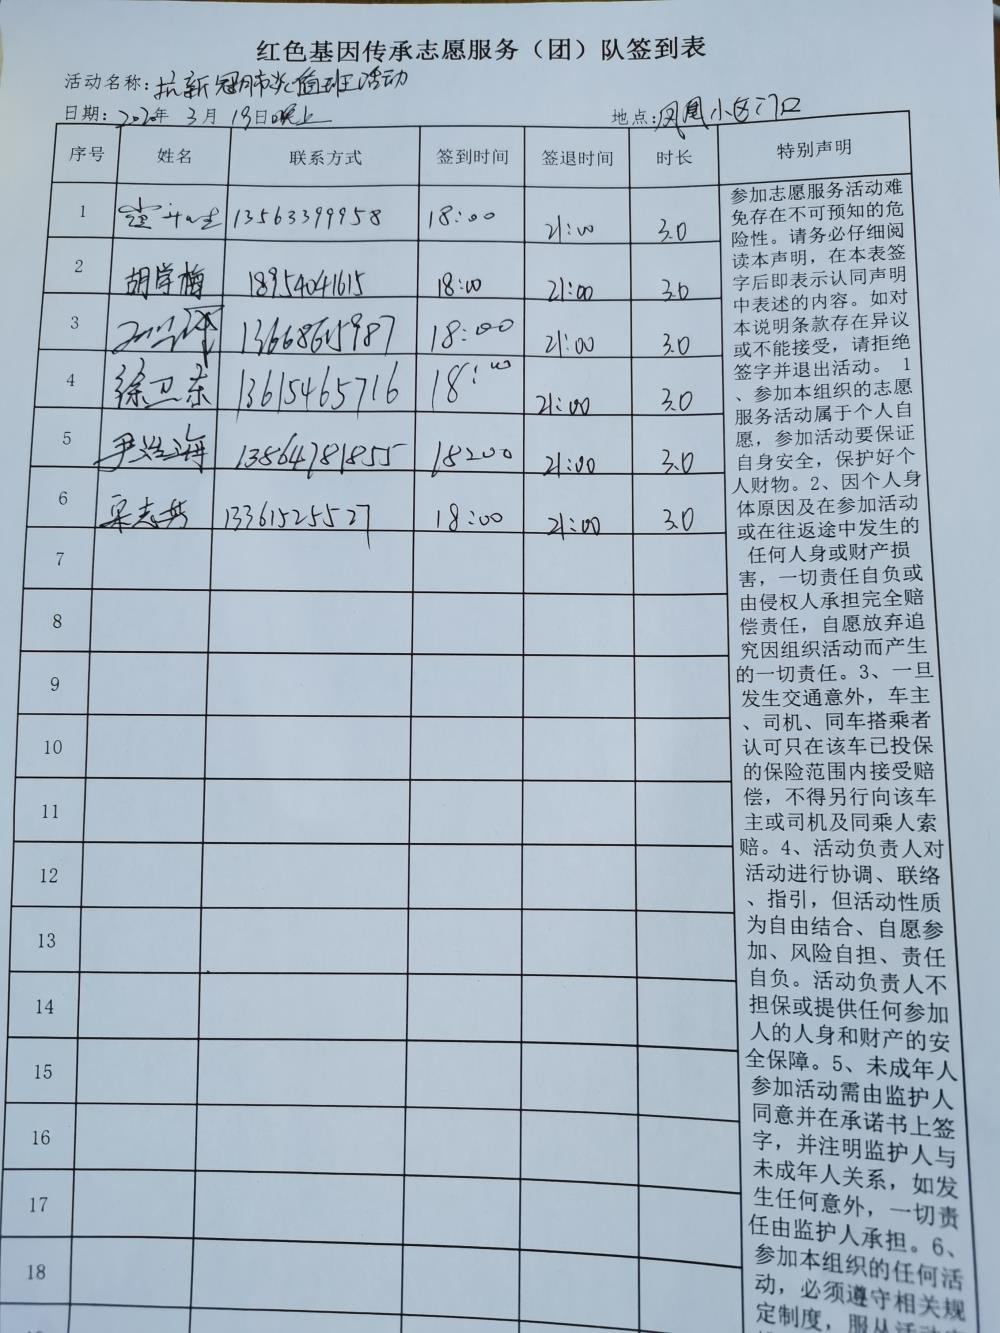 红色基因传承志愿服务（团）队签到表
活动名称：抗新冠肺炎值班活动
日期：2020年 3月 19日晚上 地点：凤凰小区门口
序号 姓名 联系方式 签到时间 签退时间 时长 特别声明
1 13563399958 18:00 21:00 3.0
2 胡学梅 18954041615 18:00 21:00 3.0
3 13668865987 18:00 21:00 3.0
4 徐卫东 13615465716 18:00 21:00 3.0
5 尹浩海 13864781855 18:00 21:00 3.0
6 宋志芳 13361525527 18:00 21:00 3.0
7
8
9
10
11
12
13
14
15
16
17
18
参加志愿服务活动难
免存在不可预知的危
险性。请务必仔细阅
读本声明，在本表签
字后即表示认同声明
中表述的内容。如对
本说明条款存在异议
或不能接受，请拒绝
签字并退出活动。 1
、参加本组织的志愿
服务活动属于个人自
愿，参加活动要保证
自身安全，保护好个
人财物。2、因个人身
体原因及在参加活动
或在往返途中发生的
任何人身或财产损
害，一切责任自负或
由侵权人承担完全赔
偿责任，自愿放弃追
究因组织活动而产生
的一切责任。3、一旦
发生交通意外，车主
、司机、同车搭乘者
认可只在该车已投保
的保险范围内接受赔
偿，不得另行向该车
主或司机及同乘人索
赔。4、活动负责人对
活动进行协调、联络
、指引，但活动性质
为自由结合、自愿参
加、风险自担、责任
自负。活动负责人不
担保或提供任何参加
人的人身和财产的安
全保障。5、未成年人
参加活动需由监护人
同意并在承诺书上签
字，并注明监护人与
未成年人关系，如发
生任何意外，一切责
任由监护人承担。6、
参加本组织的任何活
动，必须遵守相关规
定制度，服从活动